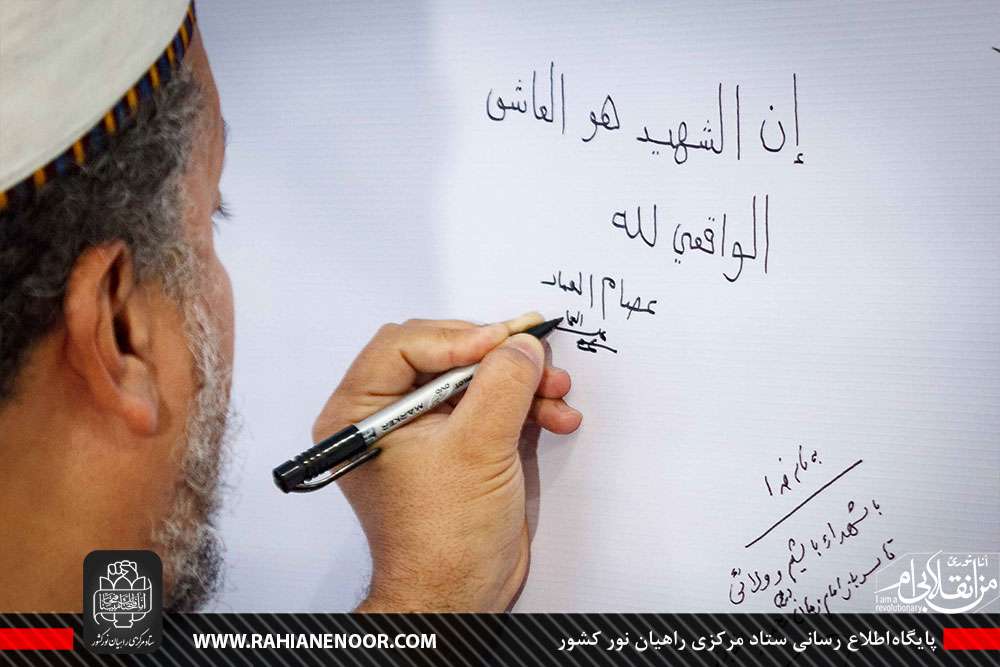 إن الشهيد هو العاشق
الواقعي لله
عصام العماد
به نام خدا
با شهداء باشیم و ولائی
تا سرباز امام زمان
من انقلابی‌ام
I am a
revolutionary
ستاد مرکزی راهیان نور کشور
WWW.RAHIANENOOR.COM
پایگاه اطلاع رسانی ستاد مرکزی راهیان نور کشور